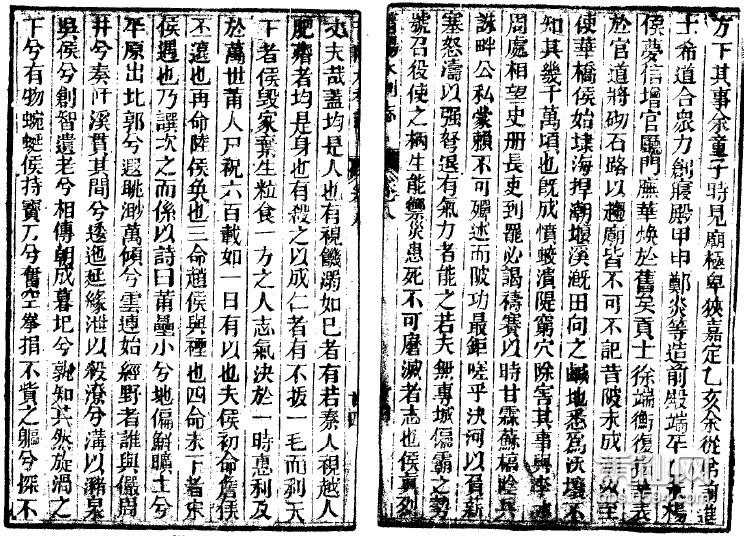 方下其事余童子時見廟極卑狹嘉定乙亥余從弟前進
士希道合衆力創寢殿甲申鄭炎等造前殿端平楊
侯夢信增官廳門廡華煥於舊矣貢士徐端衡復華表
於官道將砌石路以趨廟皆不可不記昔陂未成至
使華橋侯始埭海捍潮堰溪溉田向之鹹地悉為沃壤不
知其幾千萬頃也既成憤蛟濆隄窮穴除害其事與李冰
周處相望史册長吏到罷必謁禱賽以時甘霖蘇槁陰兵
誅畔公私蒙賴不可殫述而陂功最鉅嗟乎決河以負薪
塞怒濤以强弩退有氣力者能之若夫無專城偏霸之勢
號召役使之柄生能禦災患死不可磨滅者志也侯真烈
丈夫哉蓋均是人也有視饑溺如已者有若秦人視越人
肥瘠者均是身也有殺之以成仁者有不拔一毛而利天
下者侯毀家棄生粒食一方之人志氣決於一時惠利及
於萬世莆人尸祝六百載如一日有以也夫侯初命詹侯
丕遠也再命陸侯奐也三命趙侯與禋也四命未下者宋
侯遇也乃譔次之而係以詩曰莆壘小兮地偏鮮曠土兮
平原出北郭兮遐眺渺萬頃兮雲連始經野者誰與儼周
井兮秦阡溪貫其間兮逶迤延緣泄以殺潦兮溝以瀦泉
吳侯兮創智遺老兮相傳朝成暮圮兮孰知其然旋渦之
下兮有物蜿蜒侯持寶刀兮奮空拳捐不貲之軀兮探不